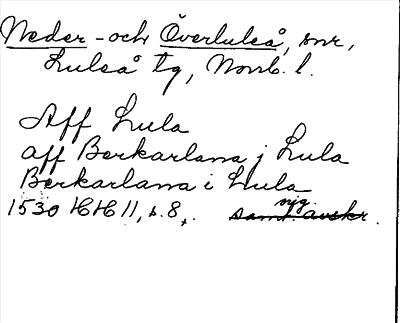 Neder- och Överluleå, snr,
Luleå tg, Norrb. l.
Aff Lula
aff Berkarlana j Lula
Berkarlana i Lula
1530 HH 11, s. 8,. samt. avskr.